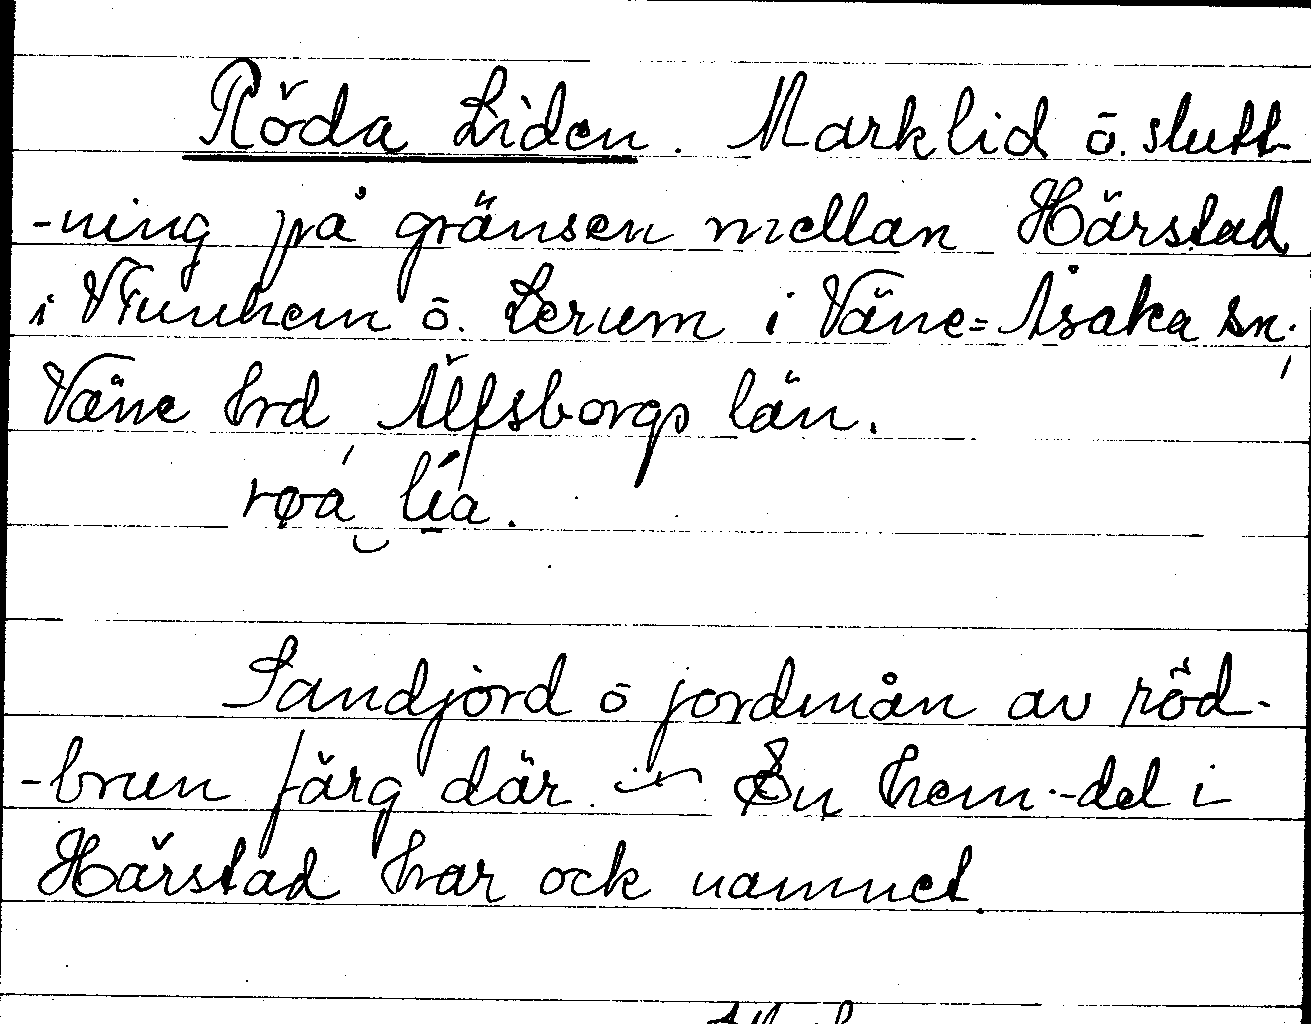 Röda Liden. Marklid ō. slutt-
-ning på gränsen mellan Härstad
i Vänhem ō. Lerum i Väne=Åsaka sn.,
Väne hrd, Älfsborgs län.
røa lia.
Sandjörd ō jordmån av röd-
-brun färg där. — En hem.-del i
Härstad har ock namnet.